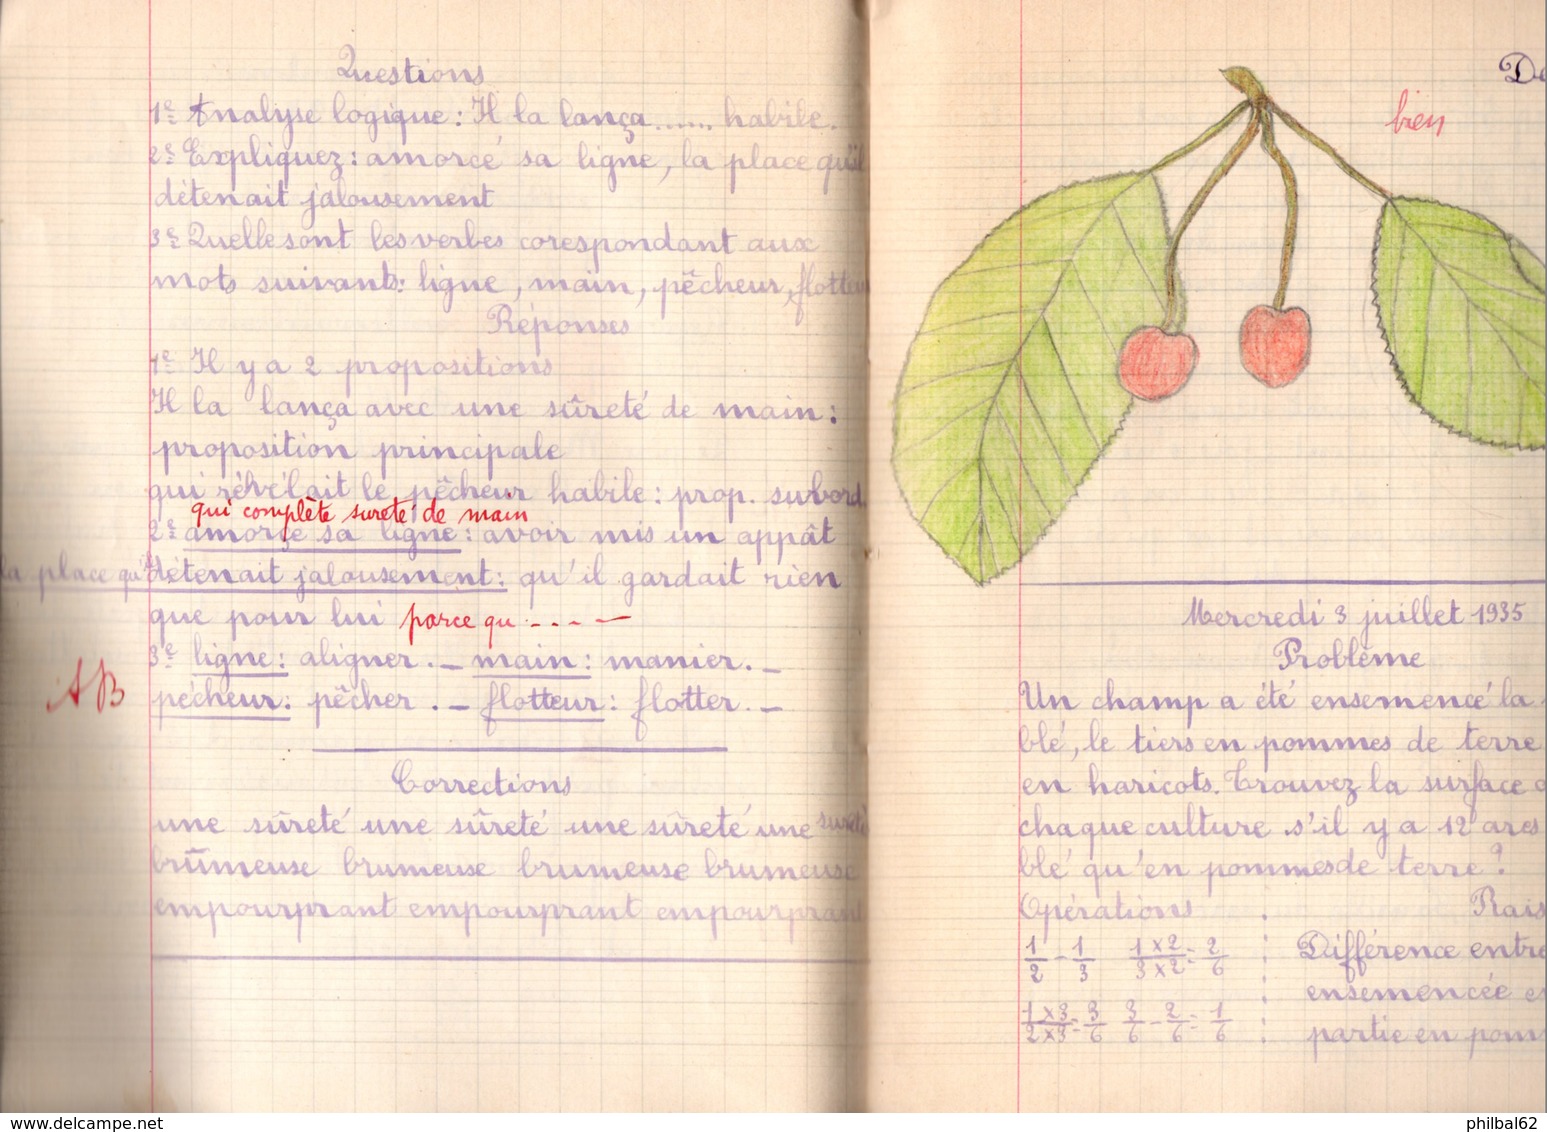 Questions
1º Analyse logique : Il la lança ...... habile.
2º Expliquez : amorcé sa ligne, la place qu'il
détenait jalousement
3º Quelle sont les verbes corespondant aux
mots suivants : ligne, main, pêcheur, flotteur
Réponses
1º Il y a 2 propositions
Il la lança avec une sûreté de main :
proposition principale
qui révélait le pêcheur habile : prop. subord.
qui complète sureté de main
2º amorçe sa ligne : avoir mis un appât
la place qu'il détenait jalousement : qu'il gardait rien
que pour lui parce qu - - - -
3º ligne : aligner . _ main : manier. _
AB
pêcheur : pêcher . _ flotteur : flotter. _
Corrections
une sûreté une sûreté une sûreté une sureté
brumeuse brumeuse brumeuse brumeuse
empourprant empourprant empourprant
De
bien
Mercredi 3 juillet 1935
Problème
Un champ a été ensemencé la
blé, le tiers en pommes de terre
en haricots. Trouvez la surface
chaque culture s'il y a 12 ares
blé qu'en pommes de terre ?
Opérations : Rais
1/2 - 1/3 1x2/3x2 = 2/6 : Différence entre
: ensemencée e
1x3/2x3 = 3/6 3/6 - 2/6 = 1/6 : partie en pom
www.delcampe.net
philbal62